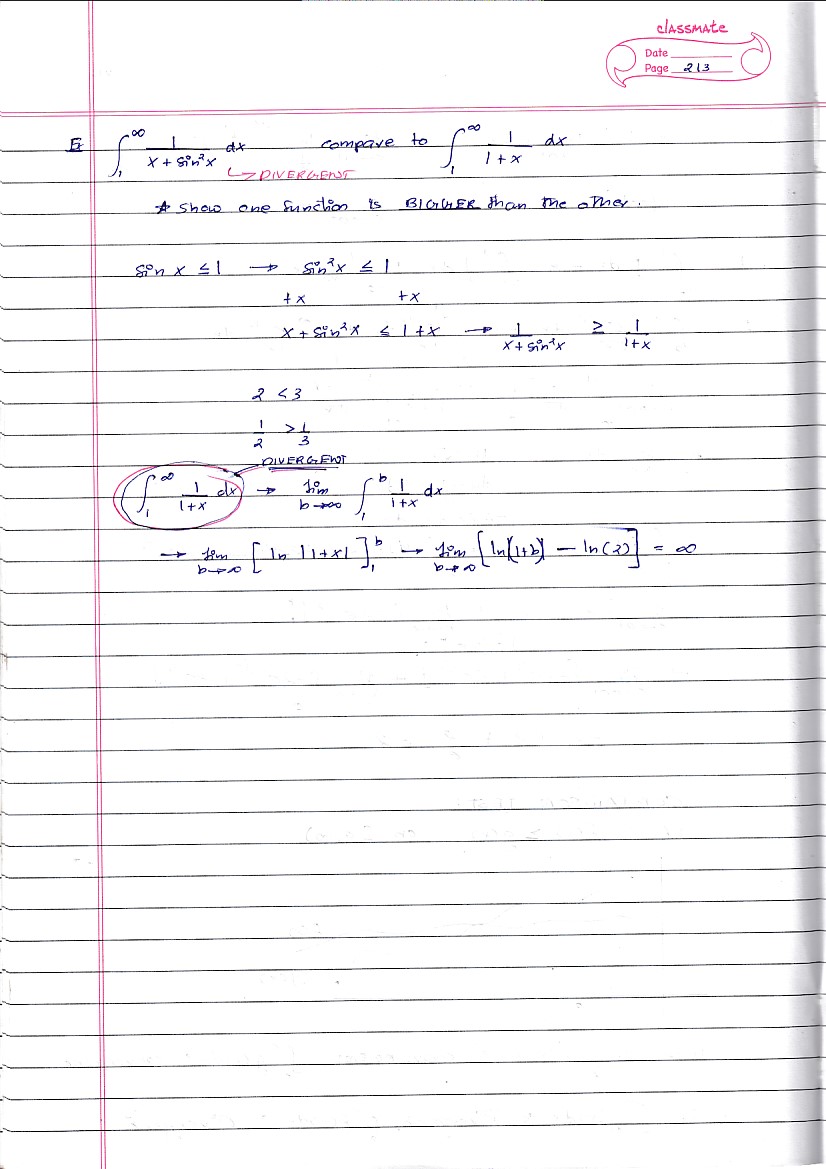 classmate
Date
Page 213
Ex ∫₁^∞ 1/(x + sin²x) dx compare to ∫₁^∞ 1/(1 + x) dx
↳ DIVERGENT
* Show one function is BIGGER than the other.
sin x ≤ 1 → sin²x ≤ 1
+x +x
x + sin²x ≤ 1 + x → 1/(x + sin²x) ≥ 1/(1+x)
2 < 3
1/2 > 1/3
DIVERGENT
∫₁^∞ 1/(1+x) dx → lim b→∞ ∫₁^b 1/(1+x) dx
→ lim b→∞ [ln |1+x|]₁^b → lim b→∞ [ln(1+b) − ln(2)] = ∞